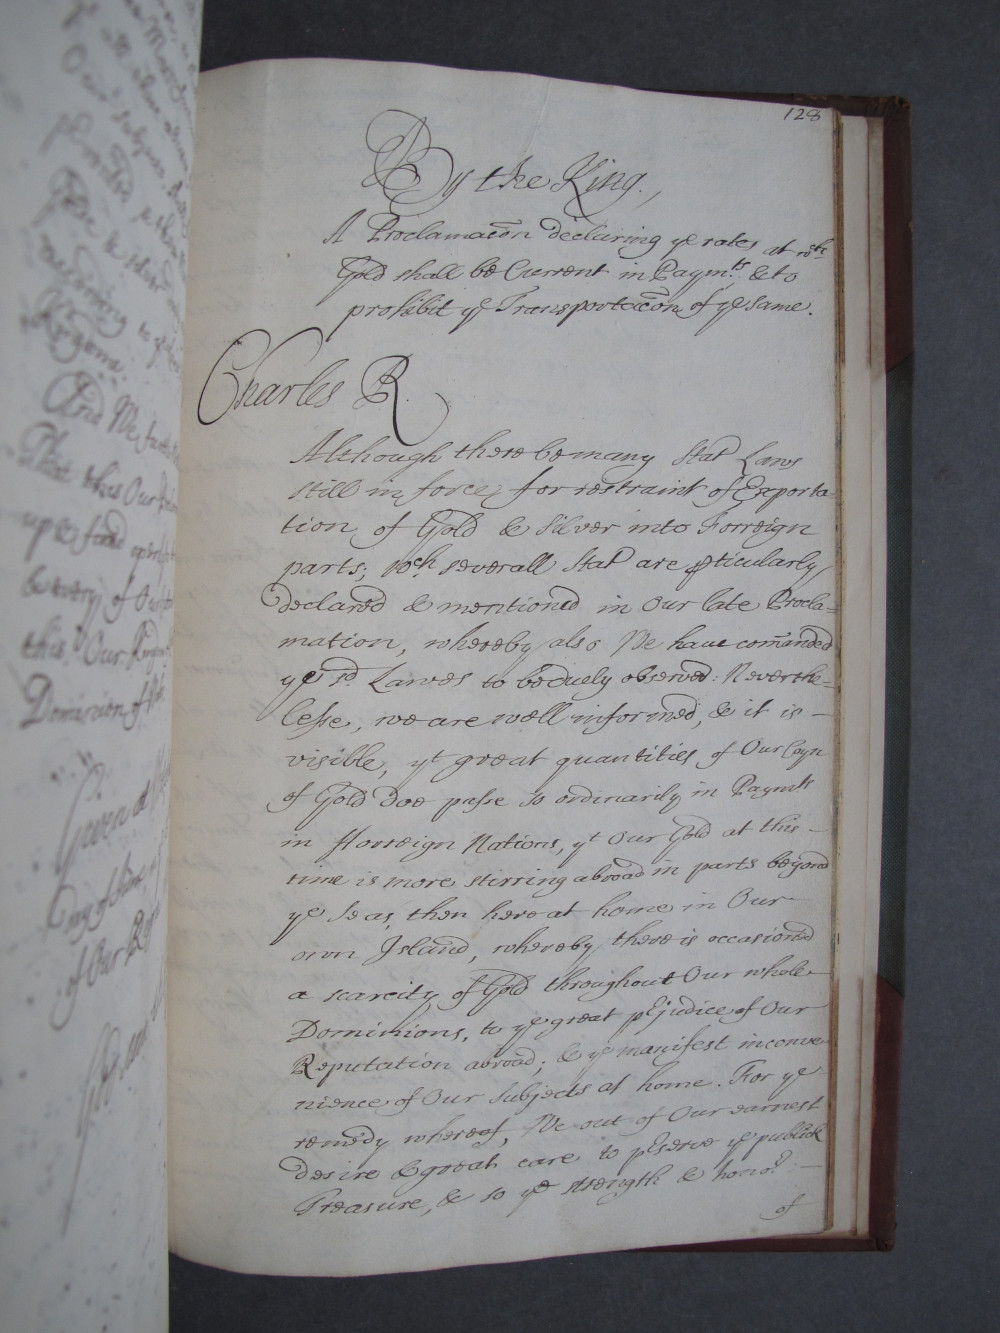 128
By the King.,
A Proclamac̃on declaring ye rates at wch
Gold shall be Current in Paymts. & to
prohibit ye Transportac̃on of ye same.
Charles R.
Although there be many Stat Laws
still in force, for restraint of Exporta-
tion of Gold & Silver into Forreign
parts; wch. severall Stat are pticularly
declared & mentioned in Our late Procla=
mation, whereby also We have com̃anded
ye sd. Lawes to be duely observed: Neverthe-
lesse, we are well informed, & it is –
visible, yt great quantities of Our Coyn
of Gold doe passe so ordinarily in Paymts
in fforreign Nations, yt Our Gold at this –
time is more stirring abroad in parts beyond
ye Seas, then here at home in Our
own Island, whereby there is occasioned
a scarcity of Gold throughout Our whole
Dominions, to ye great pejudice of Our
Reputation abroad; & ye manifest inconve
nience of Our Subjects at home. For ye
remedy whereof, We out of Our earnest
desire & great care to pserve ye publick
Treasure, & so ye strength & honor –
of
And We
That this Our
up &
& every of Our
this Our
Dominion of
Given at
Day of
of Our